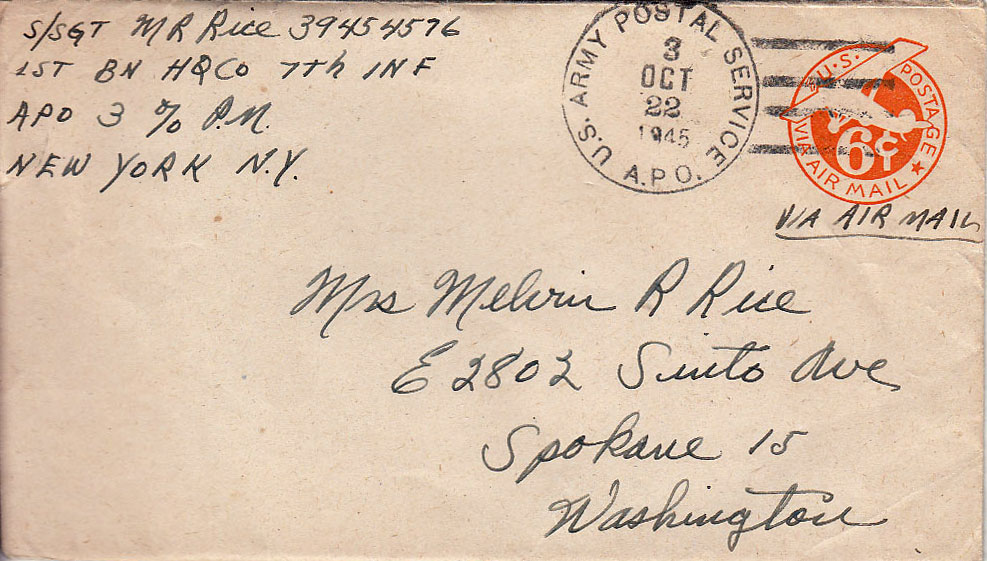 S/SGT M R Rice 39454576
1ST BN HQ Co 7th INF
APO 3 c/o P.M.
NEW YORK N.Y.
U.S. ARMY POSTAL SERVICE
3
OCT
22
1945
A.P.O.
U.S. POSTAGE
6¢
VIA AIR MAIL
VIA AIR MAIL
Mrs Melvin R Rice
E 2802 Sinto Ave
Spokane 15
Washington